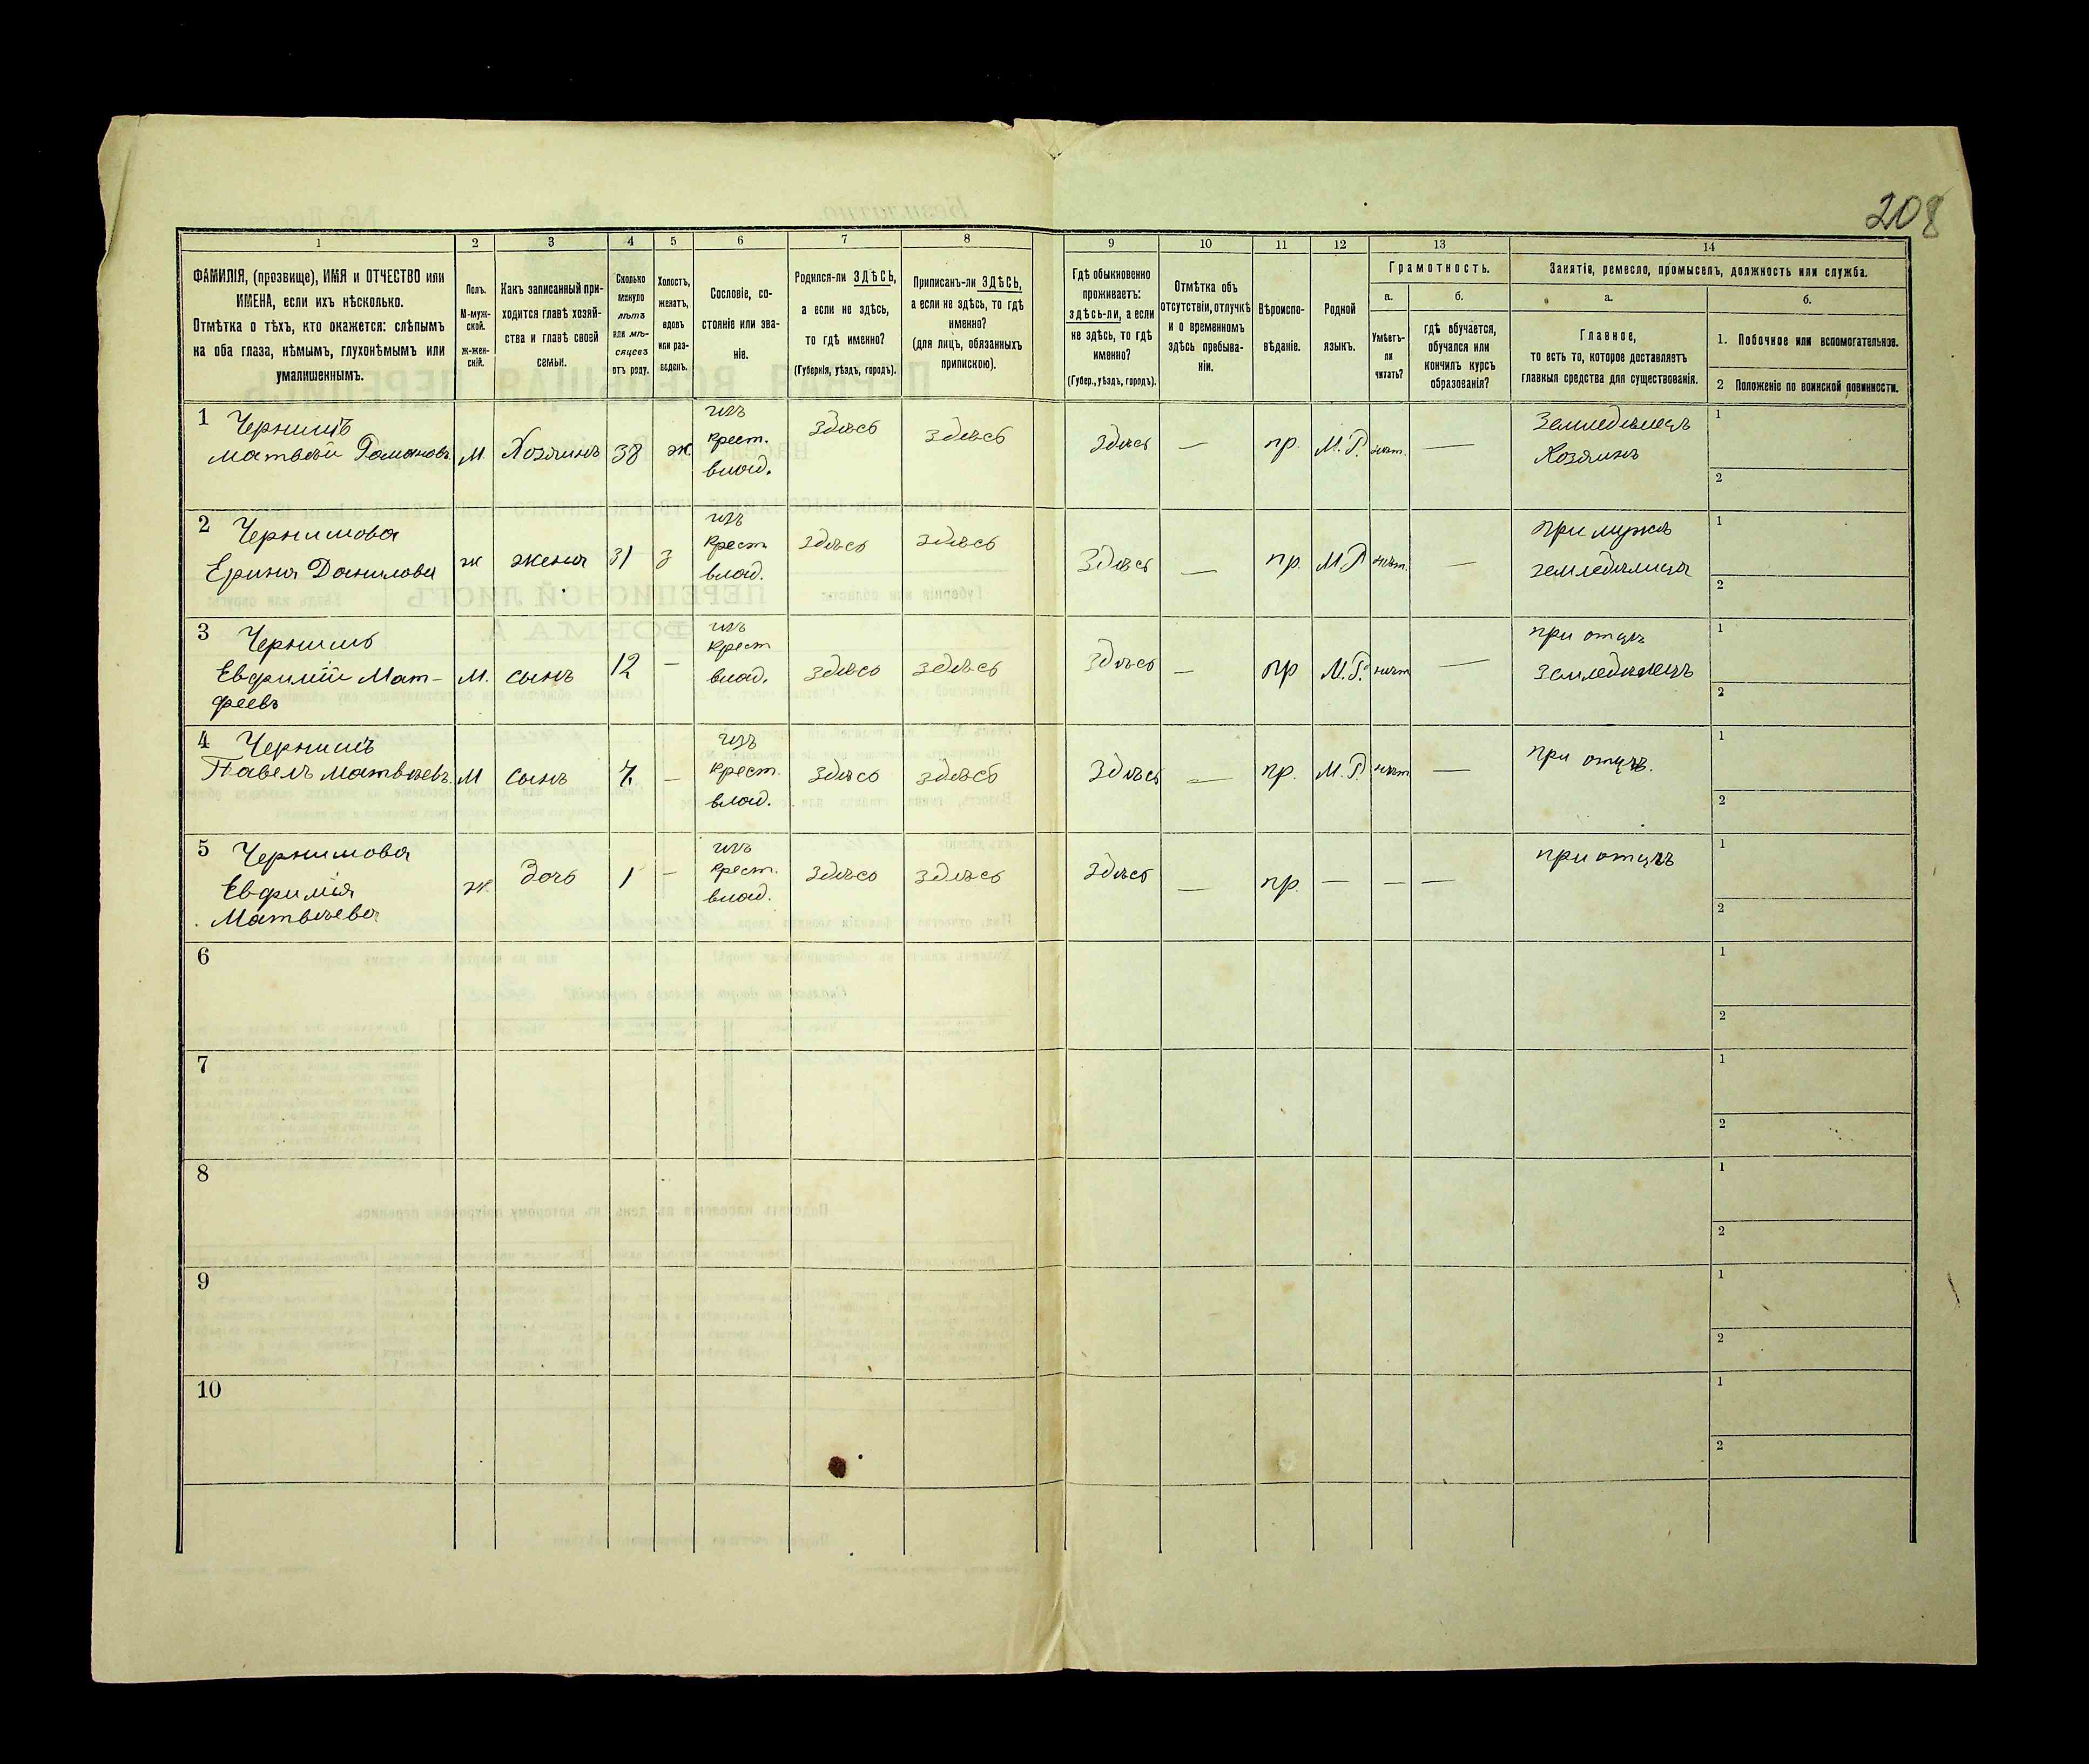 208
1 2 3 4 5 6 7 8 9 10 11 12 13 14
ФАМИЛІЯ, (прозвище), ИМЯ и ОТЧЕСТВО или
ИМЕНА, если ихъ нѣсколько.
Отмѣтка о тѣхъ, кто окажется: слѣпымъ
на оба глаза, нѣмымъ, глухонѣмымъ или
умалишеннымъ.
Полъ.
М-муж-
ской.
Ж-жен-
скій.
Какъ записанный при-
ходится главѣ хозяй-
ства и главѣ своей
семьи.
Сколько
минуло
лѣтъ
или мѣ-
сяцевъ
отъ роду.
Холостъ,
женатъ,
вдовъ
или раз-
веденъ.
Сословіе, со-
стояніе или зва-
ніе.
Родился-ли ЗДѢСЬ,
а если не здѣсь,
то гдѣ именно?
(Губернія, уѣздъ, городъ).
Приписанъ-ли ЗДѢСЬ,
а если не здѣсь, то гдѣ
именно?
(для лицъ, обязанныхъ
припискою).
Гдѣ обыкновенно
проживаетъ:
здѣсь-ли, а если
не здѣсь, то гдѣ
именно?
(Губер., уѣздъ, городъ).
Отмѣтка объ
отсутствіи, отлучкѣ
и о временномъ
здѣсь пребыва-
ніи.
Вѣроиспо-
вѣданіе.
Родной
языкъ.
Грамотность.
а.
Умѣетъ-
ли
читать?
б.
гдѣ обучается,
обучался или
кончилъ курсъ
образованія?
Занятія, ремесло, промыселъ, должность или служба.
а.
Главное,
то есть то, которое доставляетъ
главныя средства для существованія.
б.
1. Побочное или вспомогательное.
2 Положеніе по воинской повинности.
1 Чернишъ
Матвѣй Романовъ
М. Хозяинъ 38 ж.
изъ
крест.
влад.
здѣсь здѣсь здѣсь — пр. М.Р. нѣт. —
Земледѣлецъ
Хозяинъ
1
2
2 Чернишова
Ерина Данилова
ж жена 31 з
изъ
крест
влад.
здѣсь здѣсь здѣсь — пр. М.Р нѣт. —
при мужѣ
земледѣлица
1
2
3 Чернишъ
Евфимій Мат-
феевъ
М. сынъ 12 —
изъ
крест
влад.
здѣсь здѣсь здѣсь — пр М.Р. нѣт —
при отцѣ
земледѣлецъ
1
2
4 Чернишъ
Павелъ Матвѣевъ.
М сынъ 7. —
изъ
крест.
влад.
здѣсь здѣсь здѣсь — пр. М.Р. нѣт —
при отцѣ.
1
2
5 Чернишова
Евфимія
Матвѣева
ж. дочь 1 —
изъ
крест.
влад.
здѣсь здѣсь здѣсь — пр. — — —
при отцѣ
1
2
6
1
2
7
1
2
8
1
2
9
1
2
10
1
2